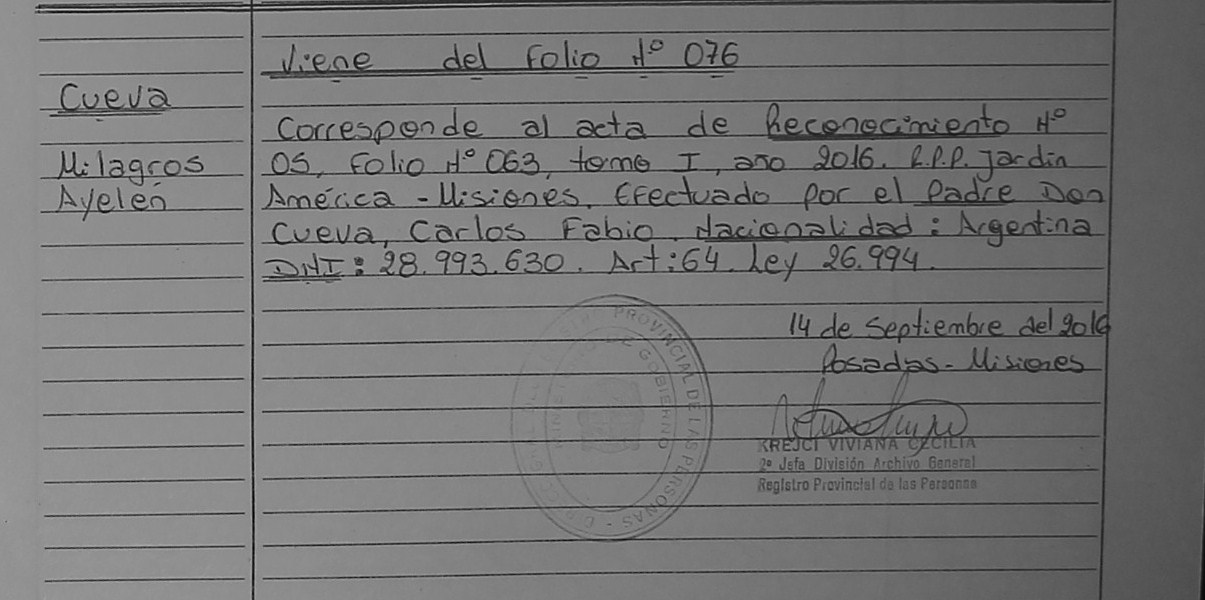 Viene del Folio Nº 076
Cueva
Milagros
Ayelén
Corresponde al acta de Reconocimiento Nº
05, Folio Nº 063, tomo I, año 2016. R.P.P. Jardín
América - Misiones. Efectuado por el Padre Don
Cueva, Carlos Fabio. Nacionalidad: Argentina
DNI: 28.993.630. Art: 64. Ley 26.994.
14 de Septiembre del 2016
Posadas - Misiones
KREJCI VIVIANA CECILIA
2º Jefa División Archivo General
Registro Provincial de las Personas
PROVINCIAL DE LAS PERSONAS
DE GOBIERNO